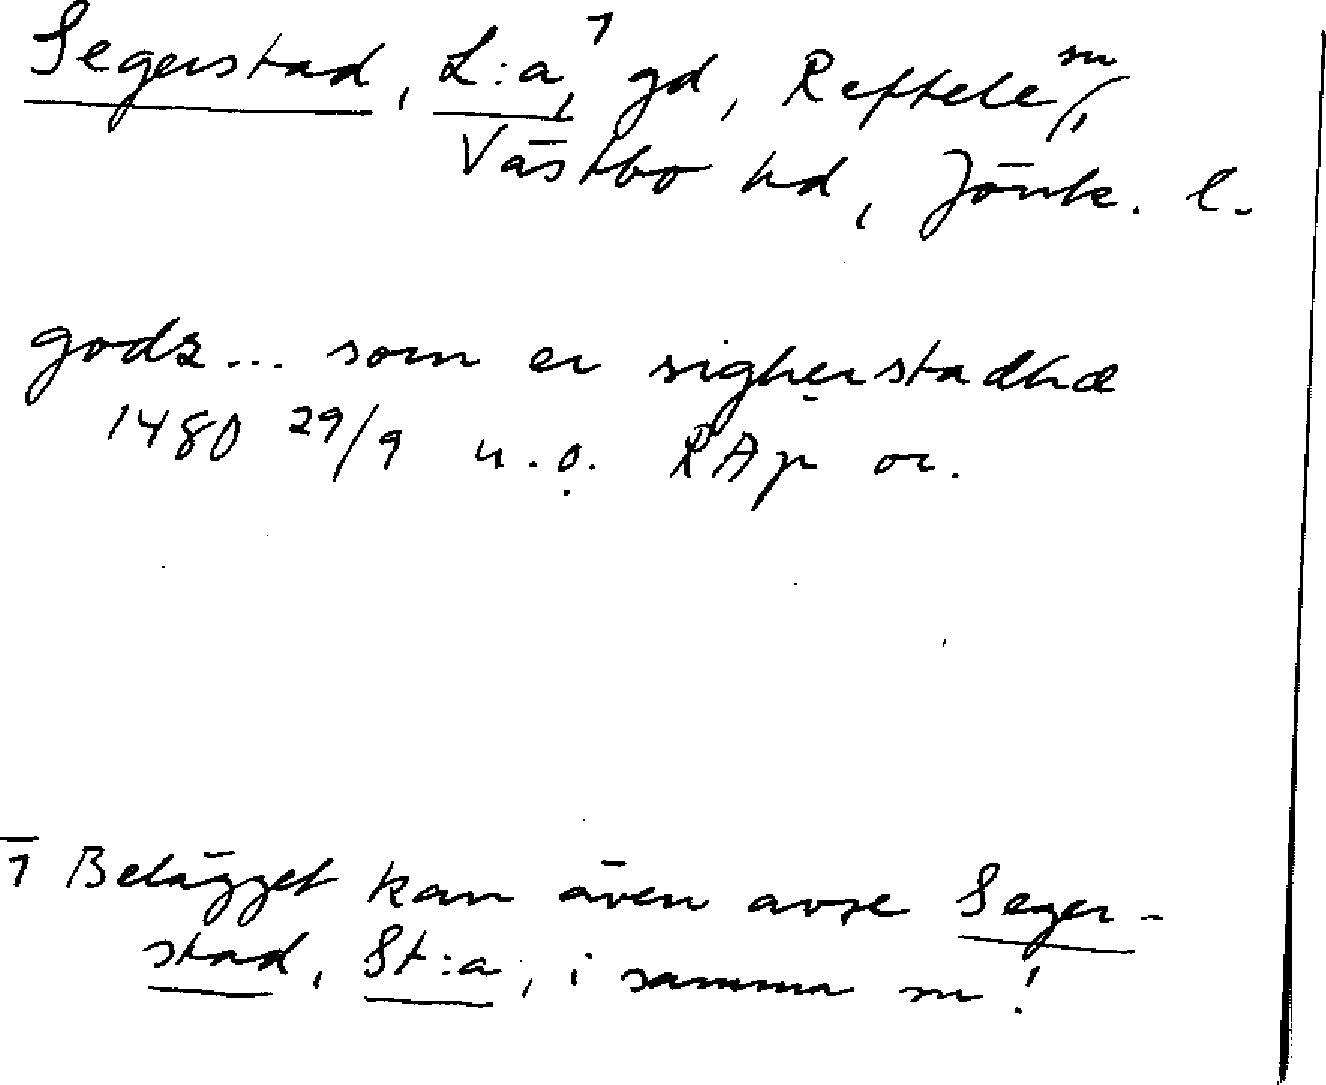 Segerstad, L:a,¹ gd, Reftele sn,
Västbo hd, Jönk. l.
godz... som er sigherstadhæ
1480 29/9 u.o. RAp or.
1 Belägget kan även avse Seger-
stad, St:a, i samma sn!